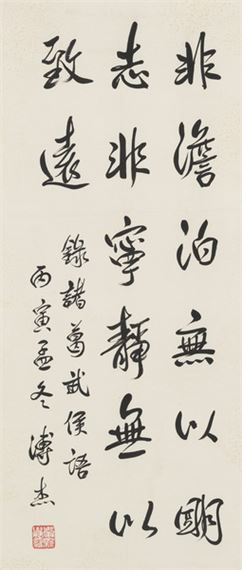 非澹泊無以明
志非寧靜無以
致遠
錄諸葛武侯語
丙寅孟冬溥杰